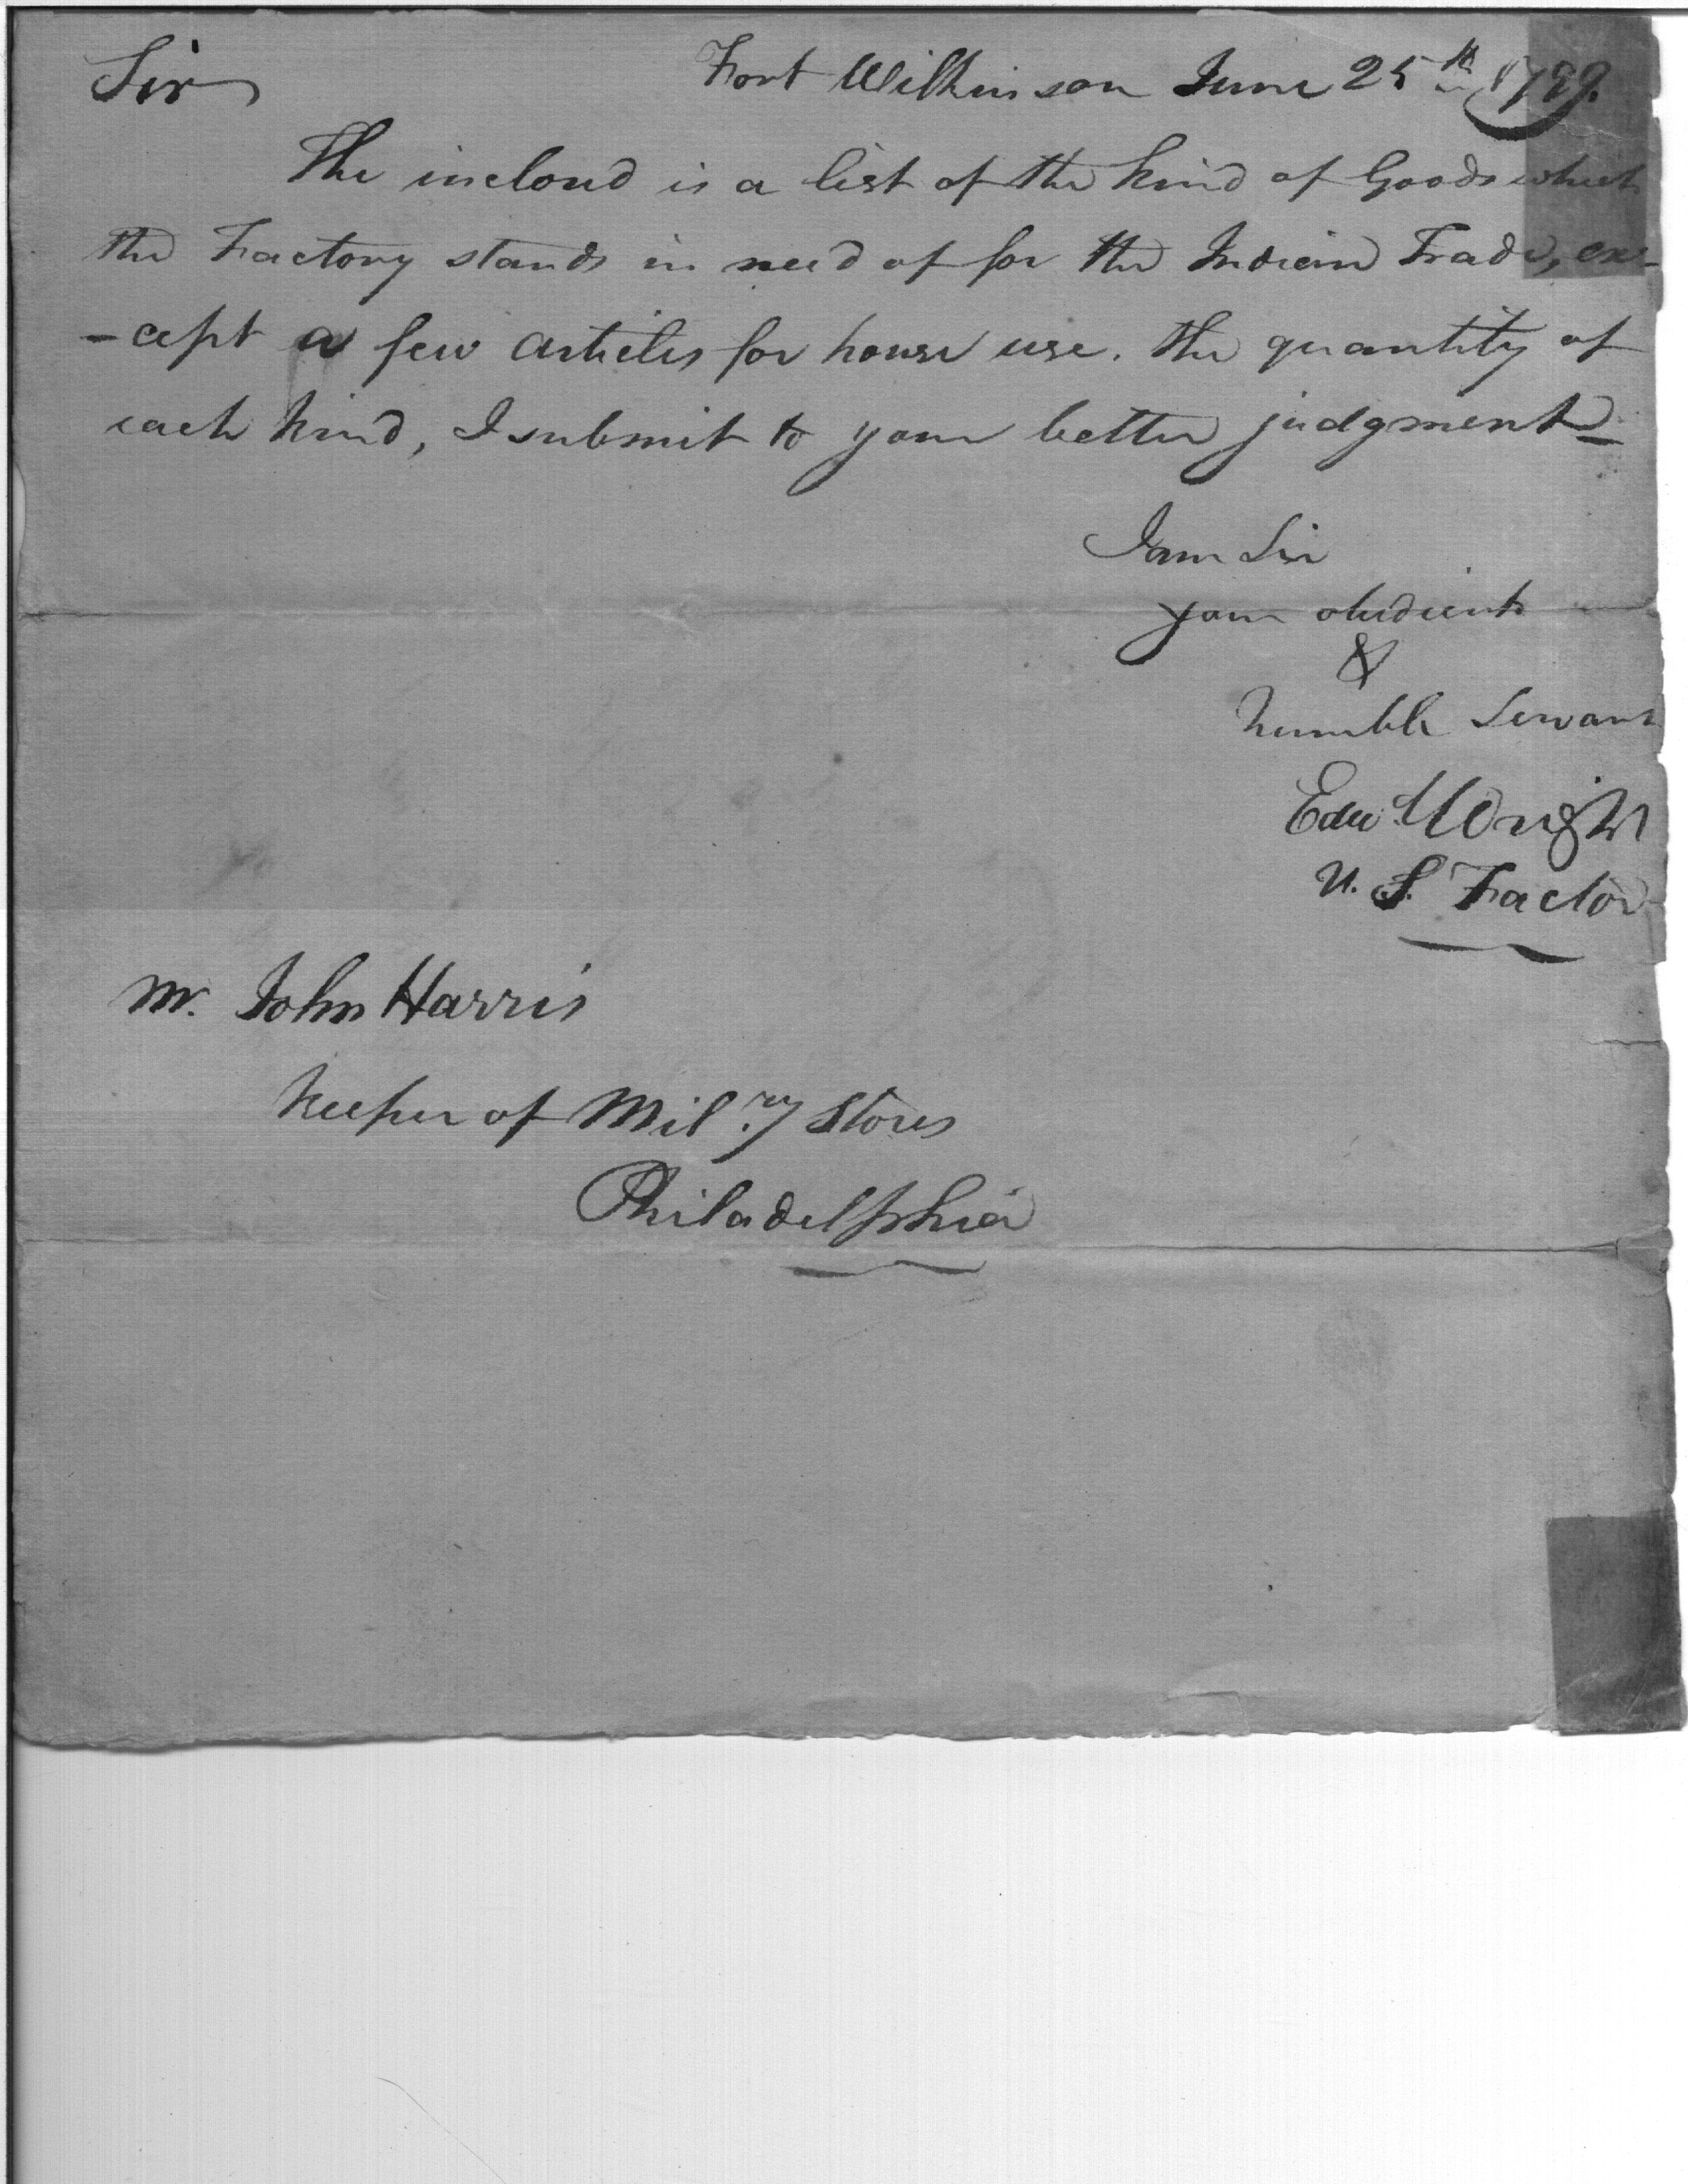 Sir Fort Wilkinson June 25th 1799.
The inclosed is a list of the kind of Goods which
the Factory stands in need of for the Indian Trade, ex-
-cept a few articles for house use. the quantity of
each kind, I submit to your better judgment
I am Sir
your obedient
&
humble Servant
Edw. Wright
U. S. Factor
Mr. John Harris
Keeper of Mil.ry Stores
Philadelphia